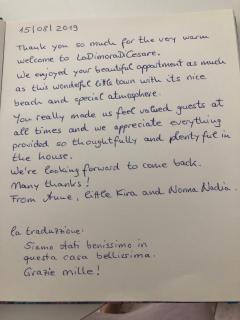 15/08/2019
Thank you so much for the very warm
welcome to LaDimoraDiCesare.
We enjoyed your beautiful appartment as much
as this wonderful little town with its nice
beach and special atmosphere.
You really made us feel valued guests at
all times and we appreciate everything
provided so thoughtfully and plentyful in
the house.
We're looking forward to come back.
Many thanks!
From Anne, little Kira and Nonna Nadia.
la traduzione:
Siamo stati benissimo in
questa casa bellissima.
Grazie mille!